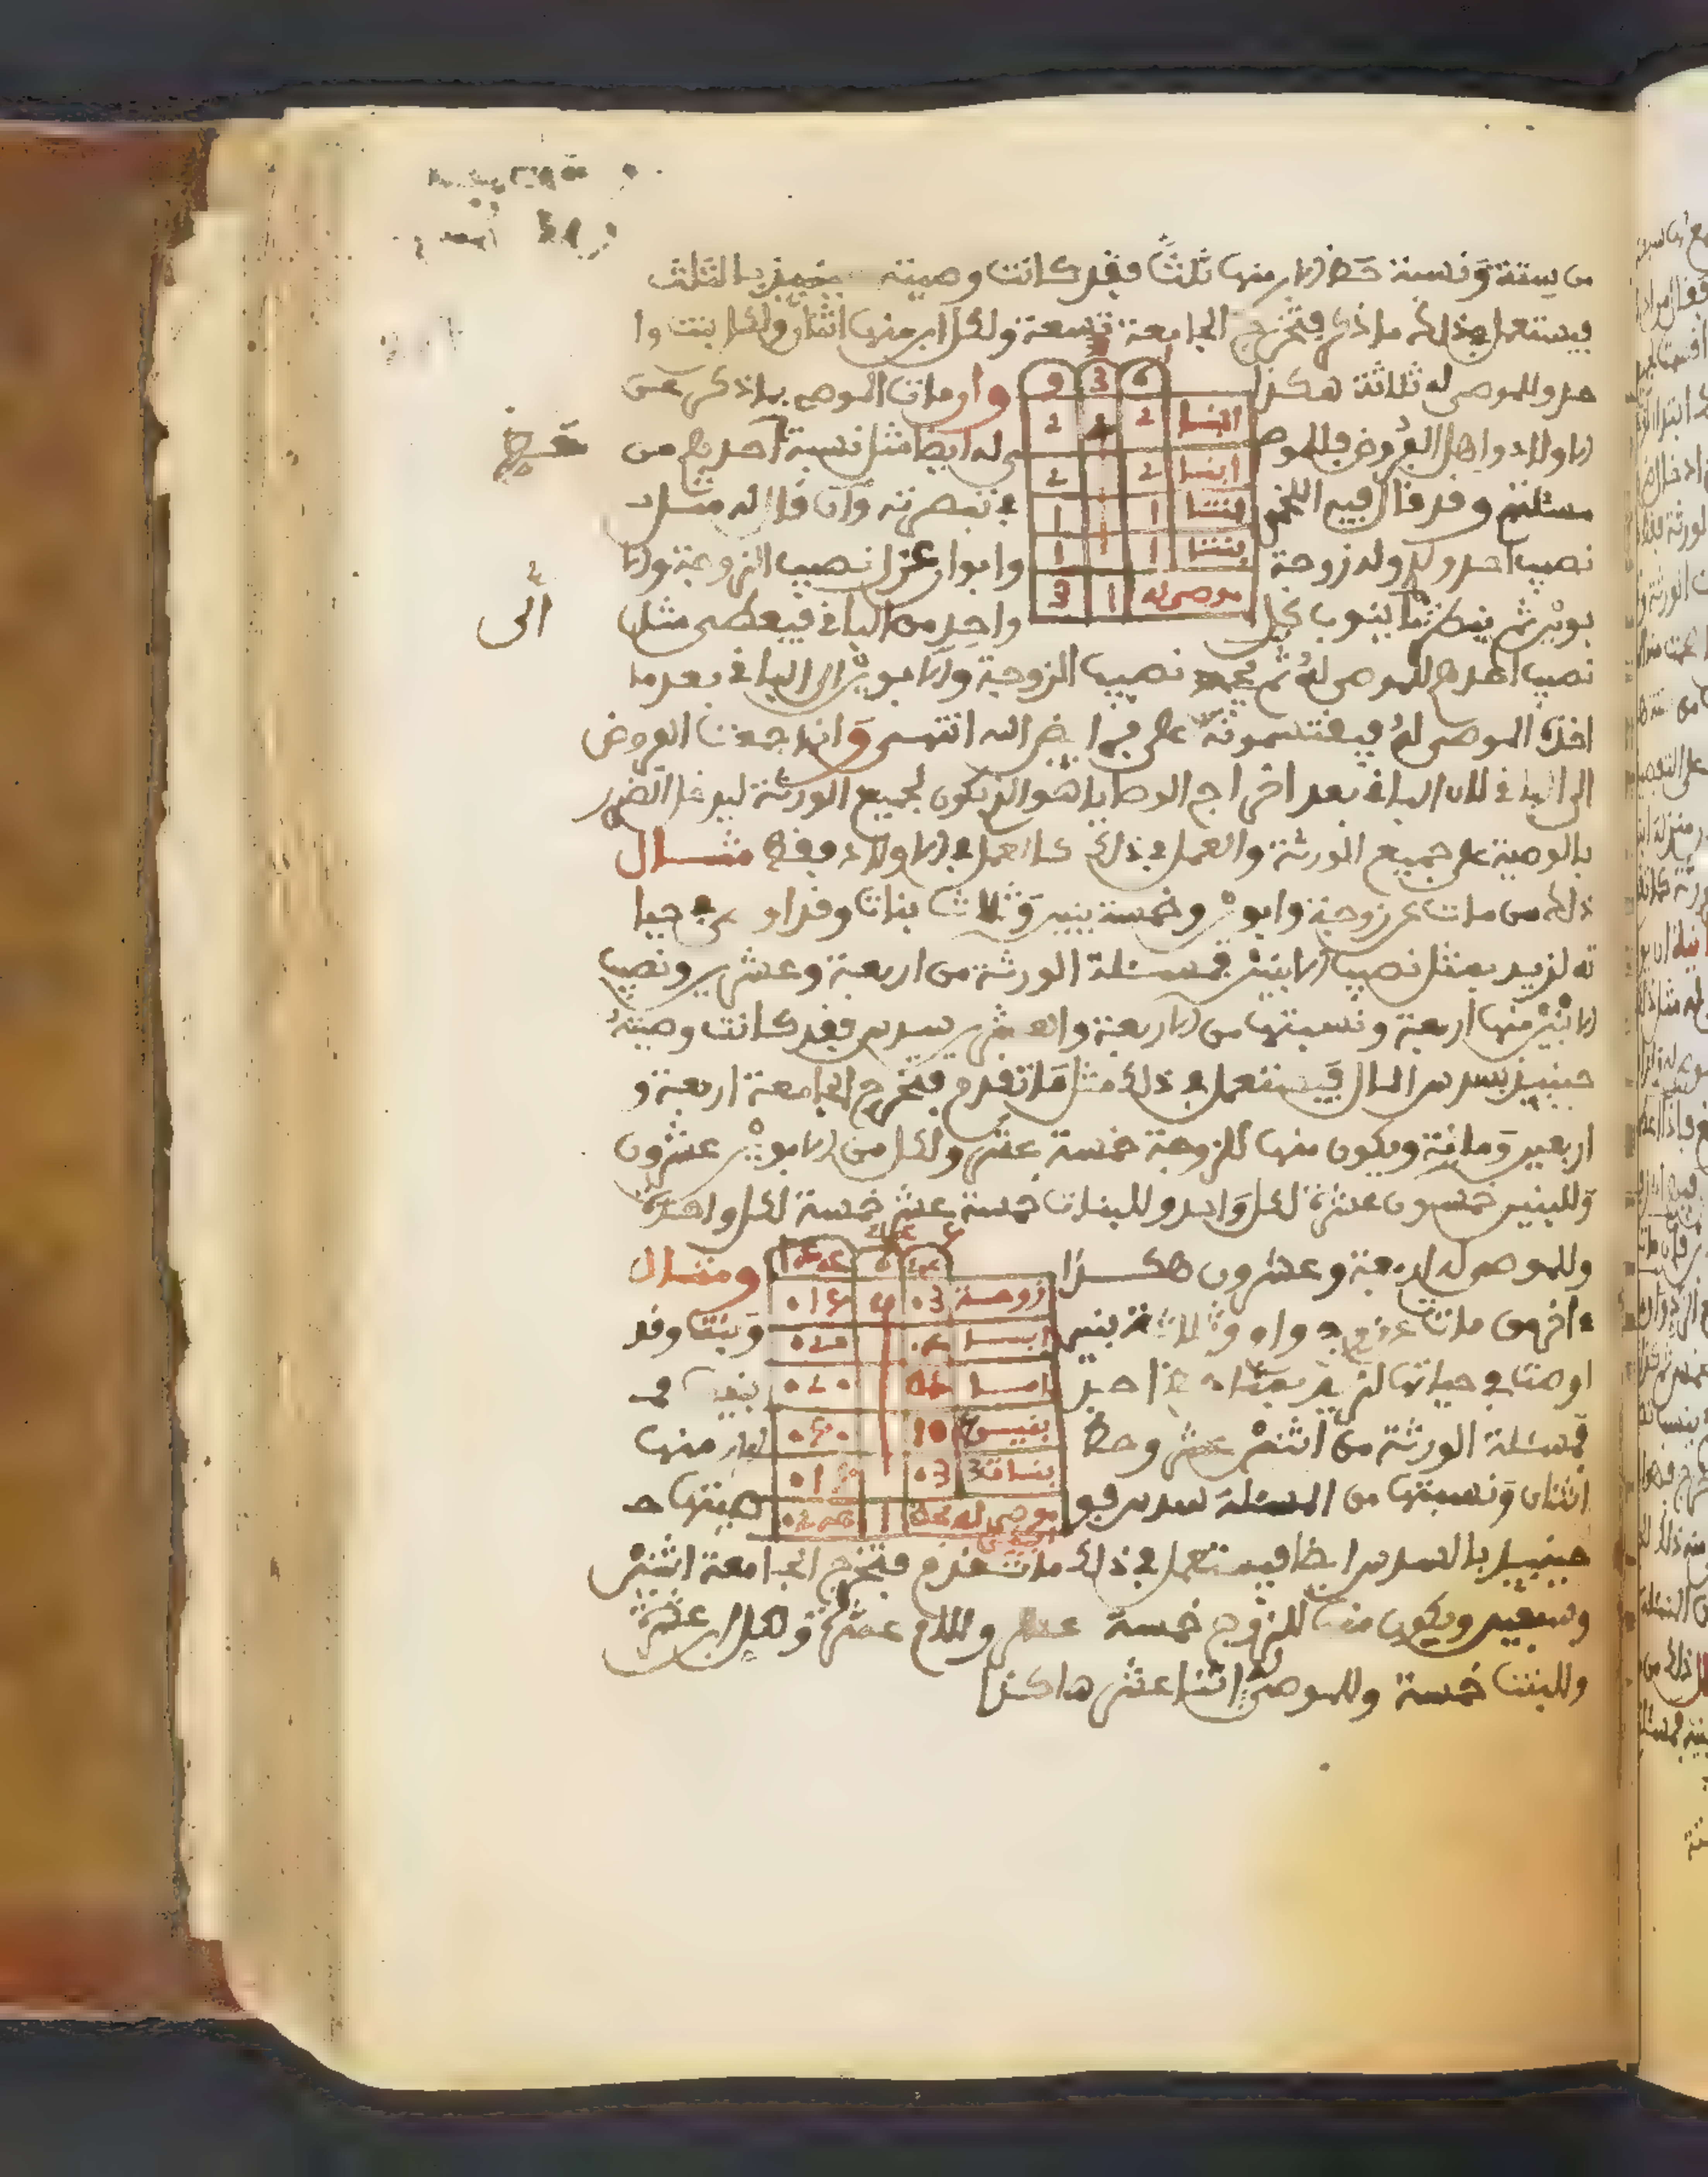 من ستة ونسبة حظ الابن منها ثلث فقد كانت وصيته حينئذ بالثلث
فيستعمل في ذلك ما ذكر فتخرج الجامعة تسعة ولكل ابن منها اثنان ولكل بنت وا
حد وللموصى له ثلاثة هكذا
9 3 6
ابنـا 2 2
ابنـا 2 2
بنتـا 1 1
بنتـا 1 1
موصى له 1 3
وان مات الموصي بما ذكر عن
الاولاد واهل الفروض فللموصى له ايضا مثل نسبة احدهم من
مسئلتهم وقد قال فيه اللخمي في تبصرته وان قال له مثل
نصيب احد ولدي وله زوجة وابوان عزل نصيب الزوجة والا
بوين ثم ينظر ما ينوب كل واحد من الباقي فيعطى مثل
الى
نصيب احدهم للموصى له ثم نصيب الزوجة والابوين الى الباقي بعد ما
اخذه الموصى له فيقتسمونه على فرايض الله انتهى وانما جمعنا الفروض
الى الباقي لان الباقي بعد اخراج الوصايا هو الذي يكون لجميع الورثة ليدخل الضرر
بالوصية على جميع الورثة والعمل في ذلك كالعمل في الاولاد فقط مثـــال
ذلك من مات عن زوجة وابوين وخمسة بنين وثلاث بنات وقد اوصى في حيا
ته لزيد بمثل نصيب الابنين فمسئلة الورثة من اربعة وعشرين ونصيب
الابنين منها اربعة ونسبتها من الاربعة والعشرين سدس فقد كانت وصيته
حينيذ بسدس المال فيستعمل في ذلك مثل ما تقدم فتخرج الجامعة اربعة و
اربعين ومائة ويكون منها للزوجة خمسة عشر ولكل من الابوين عشرون
وللبنين خمسون عشرة لكل واحد وللبنات خمسة عشر خمسة لكل واحدة
وللموصى له اربعة وعشرون هكـــذا
زوجـة 03 015
ابـا 020
امـا 020
بنيـن 10 050
بنـات 3 03 015
موصى له 024
ومثـــال
اخر من مات عن زوج وام وثلاثة بنين وبنت وقد
اوصت في حياتها لزيد بمثل حظ احد بنيها
فمسئلة الورثة من اثني عشر وحظ الابن منها
اثنان ونسبتها من المسئلة سدس فوصيتها
حينيذ بالسدس ايضا فيستعمل في ذلك ما تقدم فتخرج الجامعة اثنين
وسبعين ويكون منها للزوج خمسة عشر وللام عشرة ولكل ابن عشرة
وللبنت خمسة وللموصى له اثنا عشر هاكذا